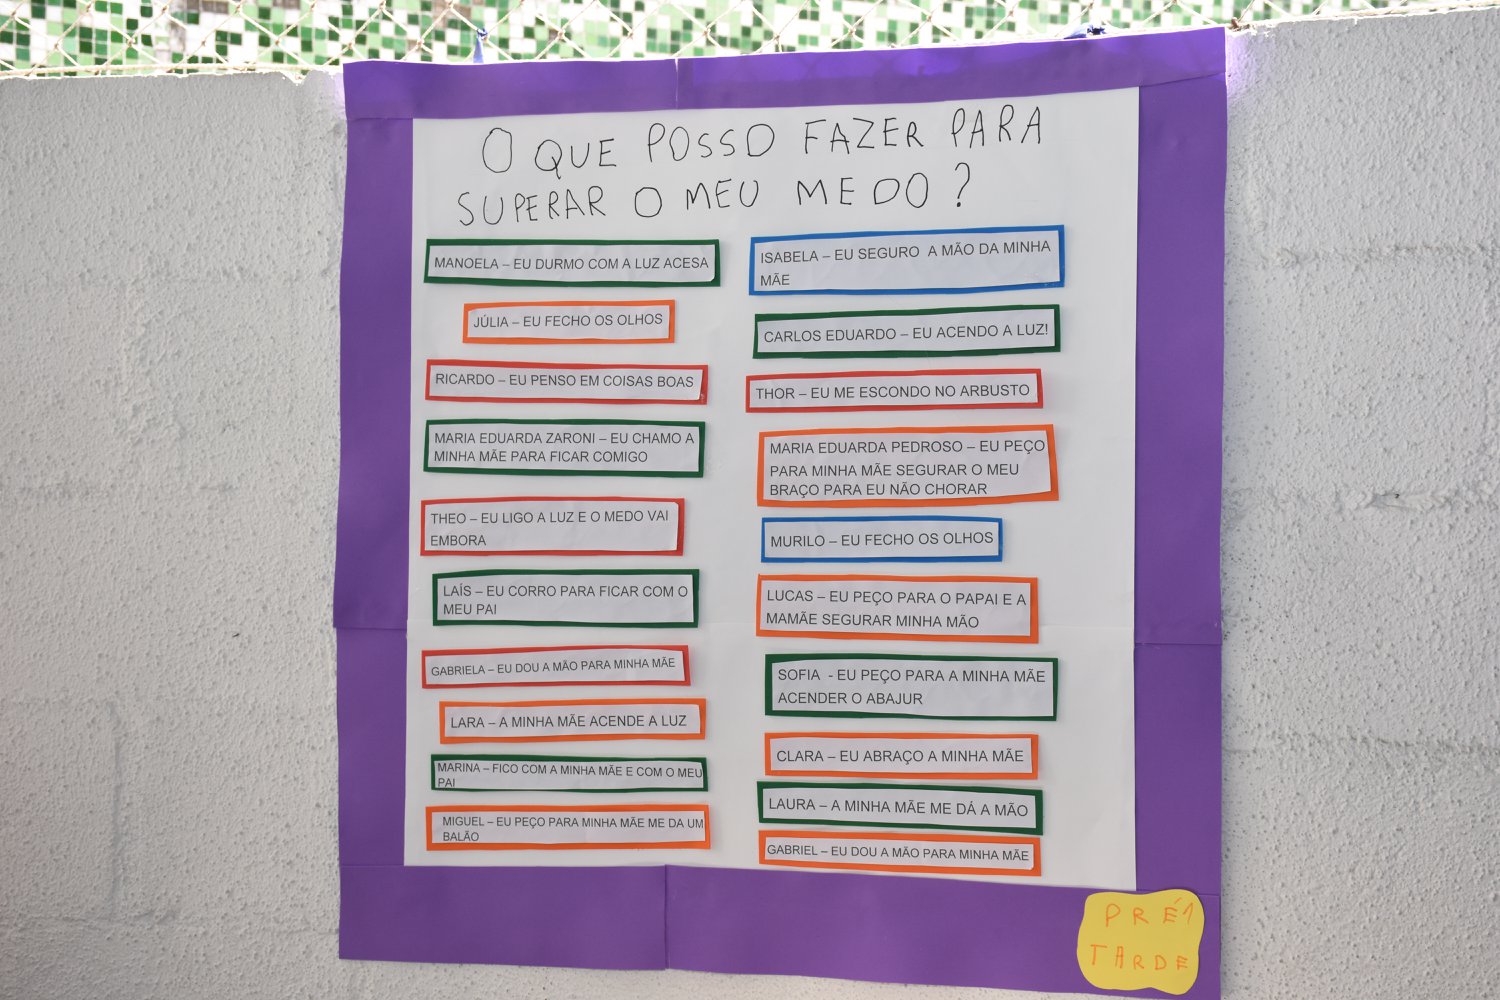 O QUE POSSO FAZER PARA
SUPERAR O MEU MEDO?
MANOELA – EU DURMO COM A LUZ ACESA
JÚLIA – EU FECHO OS OLHOS
RICARDO – EU PENSO EM COISAS BOAS
MARIA EDUARDA ZARONI – EU CHAMO A
MINHA MÃE PARA FICAR COMIGO
THEO – EU LIGO A LUZ E O MEDO VAI
EMBORA
LAÍS – EU CORRO PARA FICAR COM O
MEU PAI
GABRIELA – EU DOU A MÃO PARA MINHA MÃE
LARA – A MINHA MÃE ACENDE A LUZ
MARINA – FICO COM A MINHA MÃE E COM O MEU
PAI
MIGUEL – EU PEÇO PARA MINHA MÃE ME DA UM
BALÃO
ISABELA – EU SEGURO A MÃO DA MINHA
MÃE
CARLOS EDUARDO – EU ACENDO A LUZ!
THOR – EU ME ESCONDO NO ARBUSTO
MARIA EDUARDA PEDROSO – EU PEÇO
PARA MINHA MÃE SEGURAR O MEU
BRAÇO PARA EU NÃO CHORAR
MURILO – EU FECHO OS OLHOS
LUCAS – EU PEÇO PARA O PAPAI E A
MAMÃE SEGURAR MINHA MÃO
SOFIA - EU PEÇO PARA A MINHA MÃE
ACENDER O ABAJUR
CLARA – EU ABRAÇO A MINHA MÃE
LAURA – A MINHA MÃE ME DÁ A MÃO
GABRIEL – EU DOU A MÃO PARA MINHA MÃE
PRÉ1
TARDE